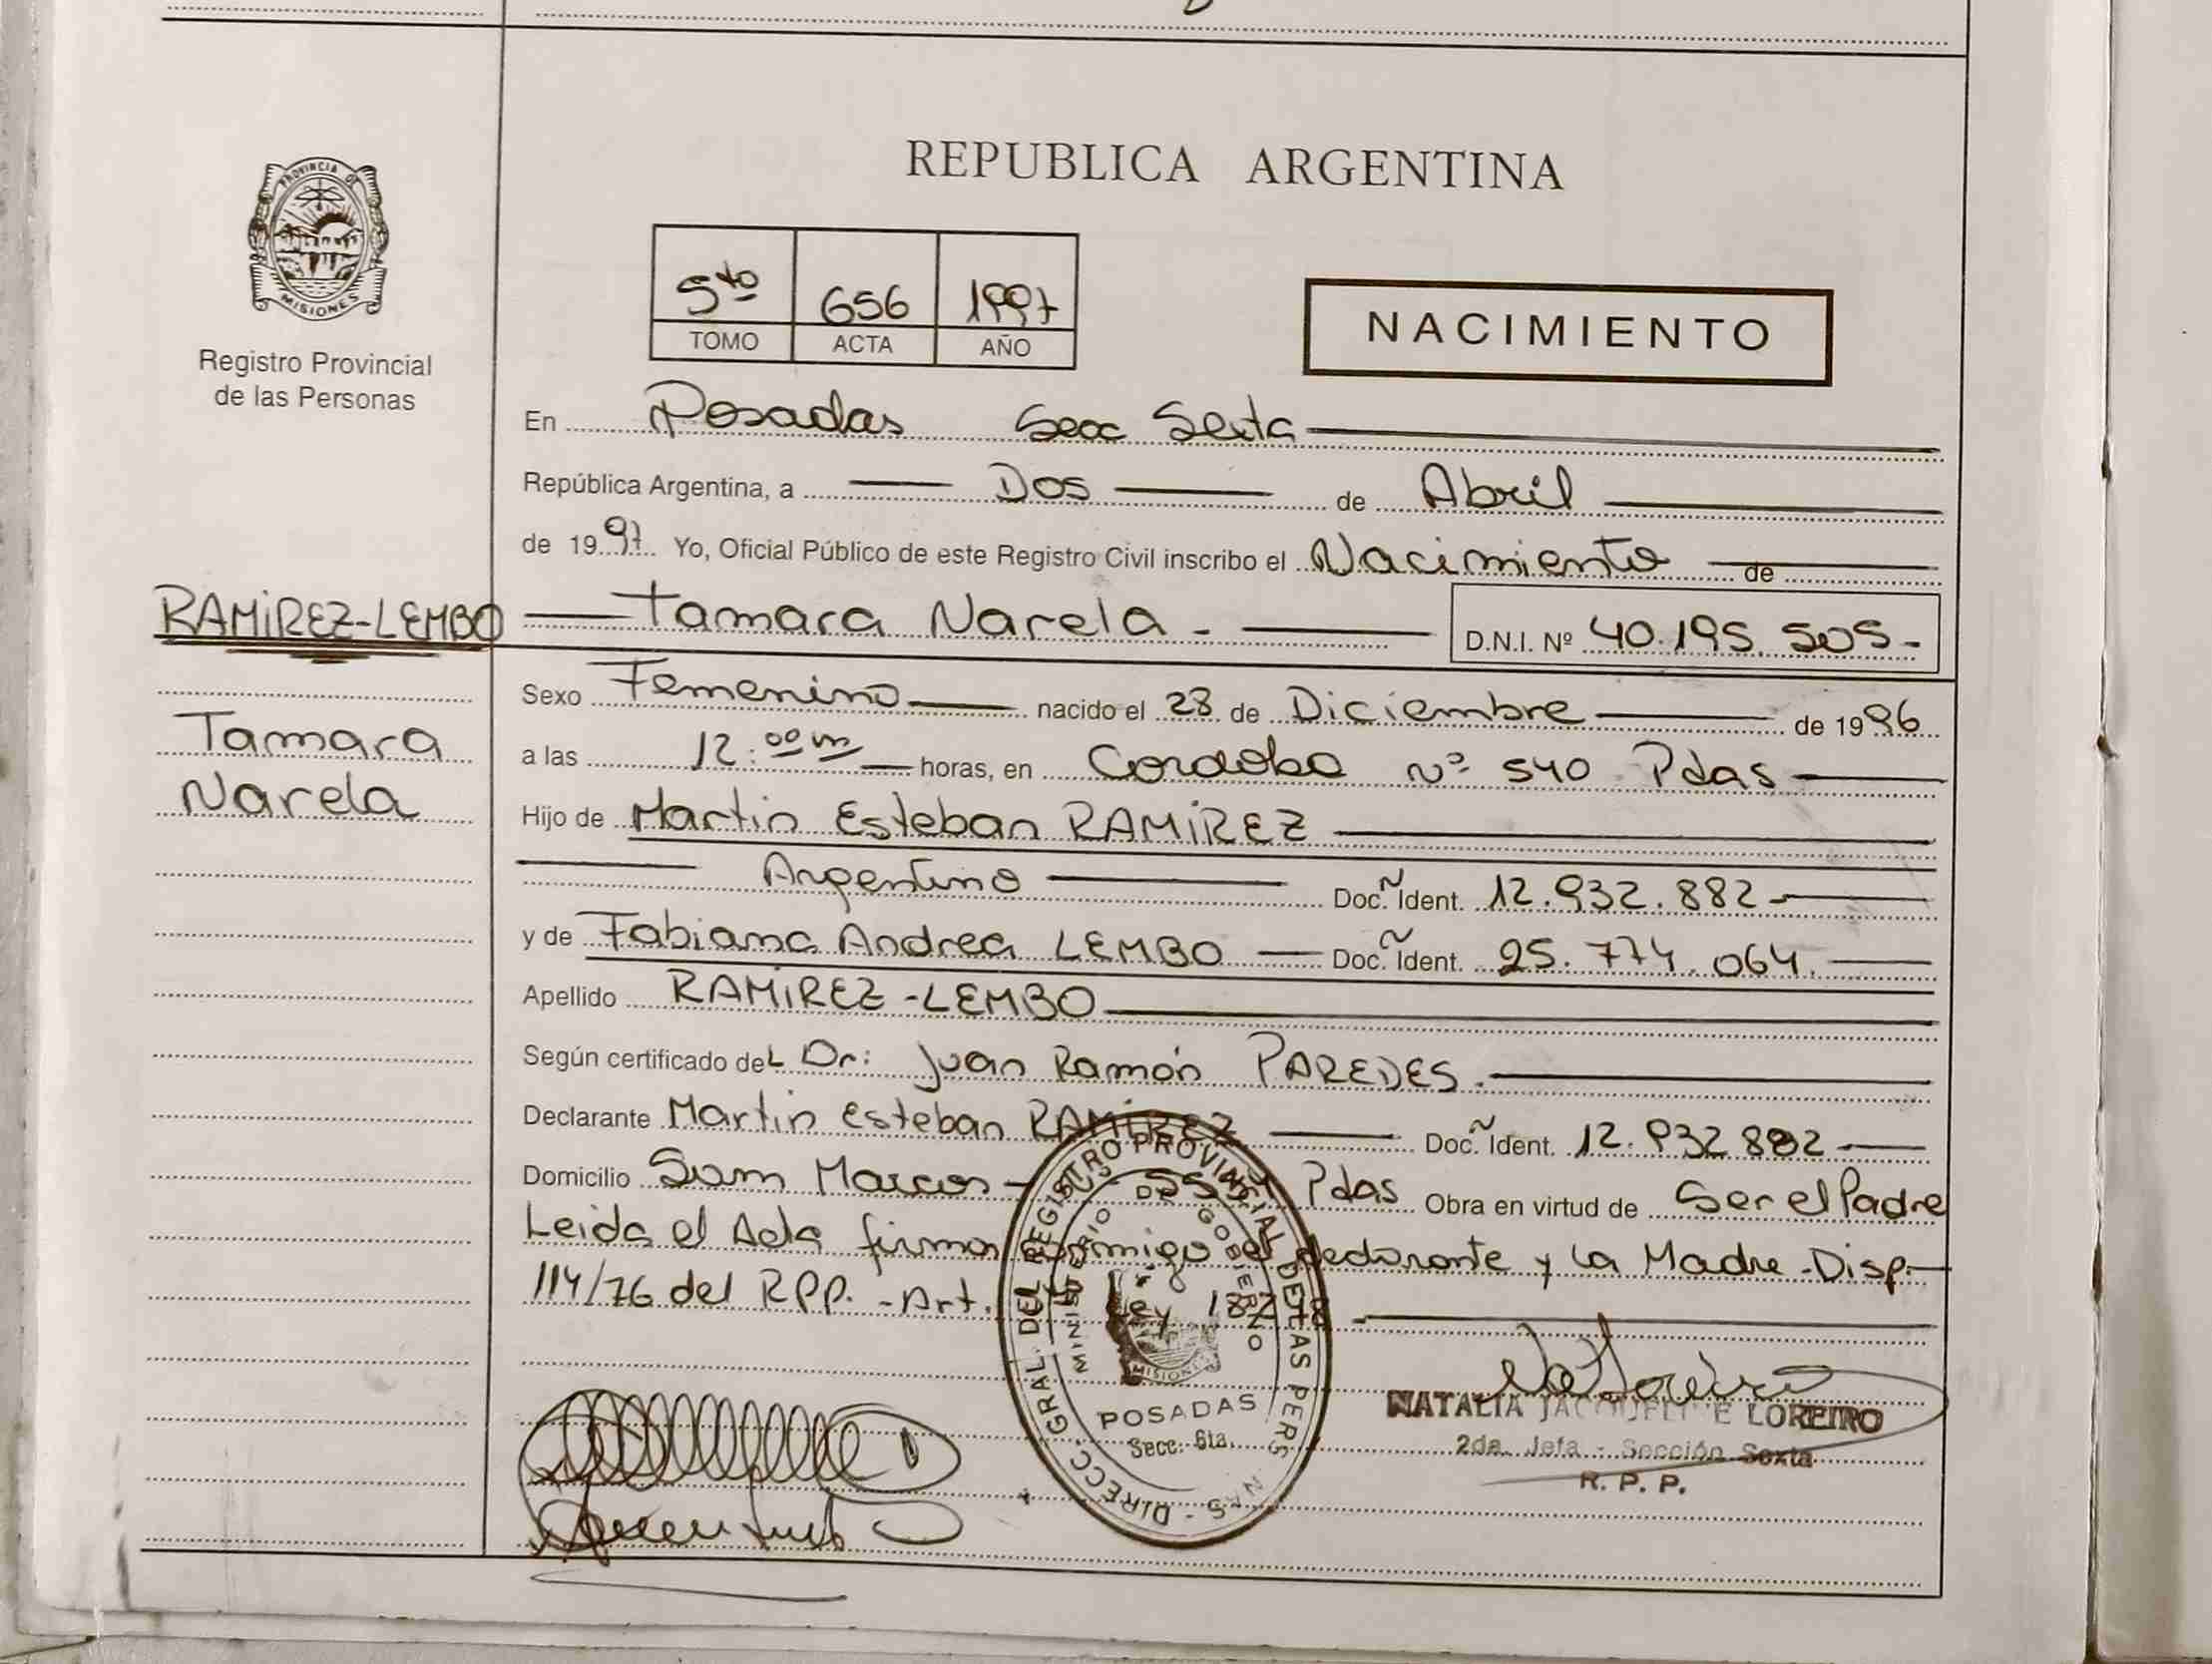 PROVINCIA DE
MISIONES
Registro Provincial
de las Personas
REPUBLICA ARGENTINA
5to 656 1997
TOMO ACTA AÑO
NACIMIENTO
En Posadas Secc Sexta
República Argentina, a Dos de Abril
de 1997 Yo, Oficial Público de este Registro Civil inscribo el Nacimiento de
RAMIREZ-LEMBO
Tamara Narela - D.N.I. Nº 40.195.505-
Tamara
Narela
Sexo Femenino nacido el 28 de Diciembre de 1996
a las 12:00 m horas, en Cordoba Nº 540 Pdas
Hijo de Martin Esteban RAMIREZ
Argentino Doc. Ident. 12.932.882-
y de Fabiana Andrea LEMBO Doc. Ident. 25.774.064.
Apellido RAMIREZ-LEMBO
Según certificado del Dr: Juan Ramón PAREDES.
Declarante Martin Esteban RAMIREZ Doc. Ident. 12.932.882
Domicilio San Marcos - Pdas Obra en virtud de Ser el Padre
Leida el Acta firman conmigo el declarante y la Madre-Disp.
114/76 del RPP. -Art. Ley
DIRECC. GRAL. DEL REGISTRO PROVINCIAL DE LAS PERS NAS
MINISTERIO DE GOBIERNO
MISIONES
POSADAS
Secc. 6ta.
NATALIA JACQUELINE LOREIRO
2da. Jefa - Sección Sexta
R. P. P.